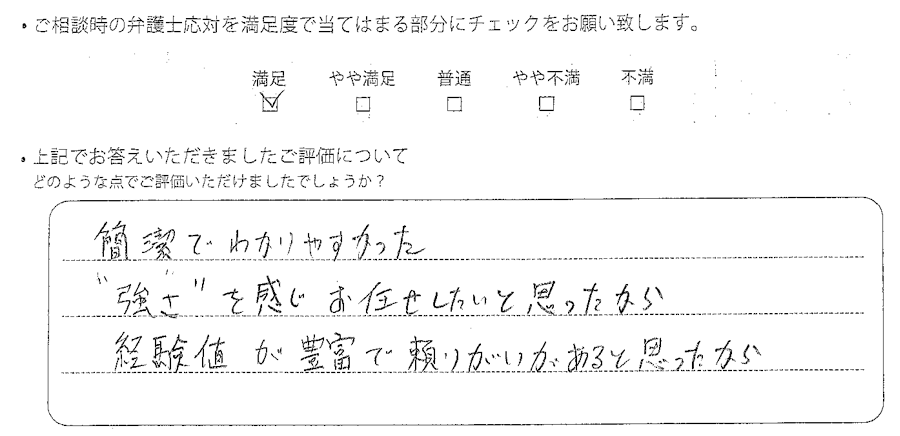 ・ご相談時の弁護士応対を満足度で当てはまる部分にチェックをお願い致します。
満足 やや満足 普通 やや不満 不満
☑ □ □ □ □
・上記でお答えいただきましたご評価について
どのような点でご評価いただけましたでしょうか？
簡潔でわかりやすかった
"強さ"を感じお任せしたいと思ったから
経験値が豊富で頼りがいがあると思ったから